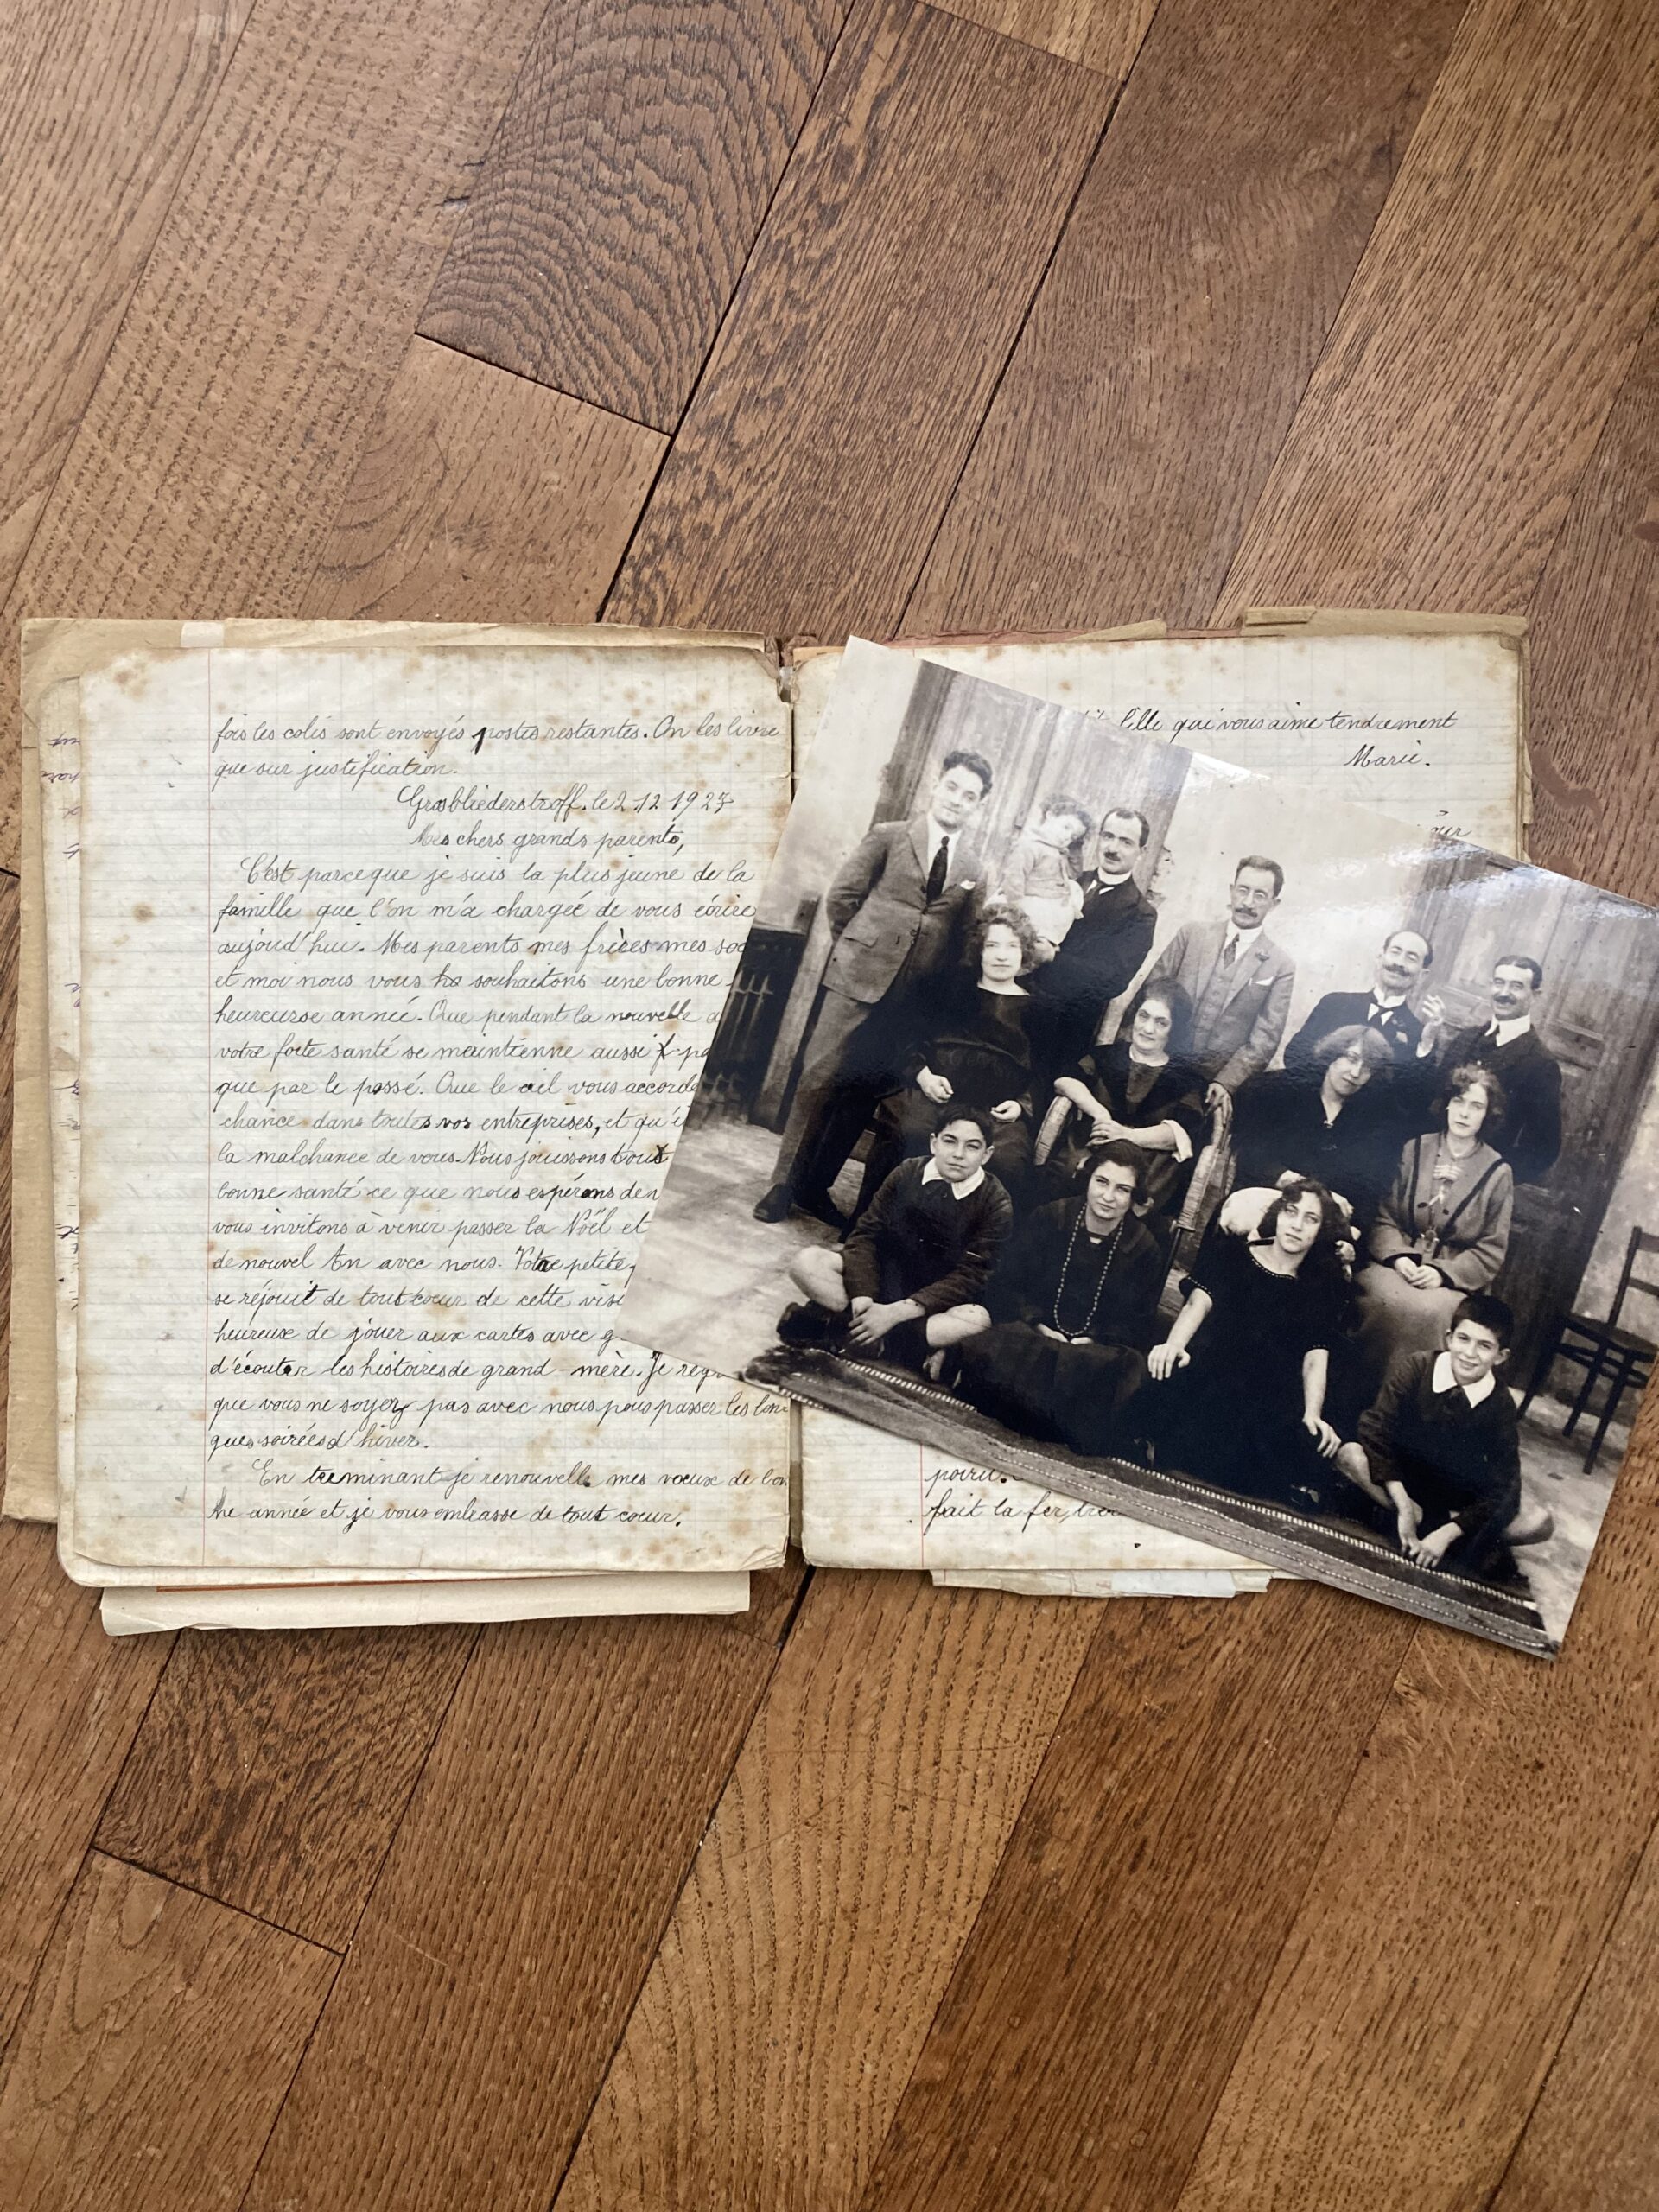 fois les colis sont envoyés postes restantes. On les livre
que sur justification.
Grosbliederstroff, le 2 12 1927
Mes chers grands parents,
C'est parceque je suis la plus jeune de la
famille que l'on m'a chargée de vous écrire
aujourd'hui. Mes parents mes frères mes
et moi nous vous souhaitons une bonne
heureuse année. Que pendant la nouvelle
votre forte santé se maintienne aussi
que par le passé. Que le ciel vous accorde
chance dans toutes vos entreprises, et
la malchance de vous. Nous jouissons tous
bonne santé ce que nous espérons de
vous invitons à venir passer la Noël et
de nouvel An avec nous. Votre petite
se réjouit de tout coeur de cette
heureuse de jouer aux cartes avec
d'écouter les histoires de grand-mère. Je
que vous ne soyez pas avec nous pour passer les lon-
gues soirées d'hiver.
En treminant je renouvelle mes voeux de bon
ne année et je vous embrasse de tout coeur.
fille qui vous aime tendrement
Marie.
fait la